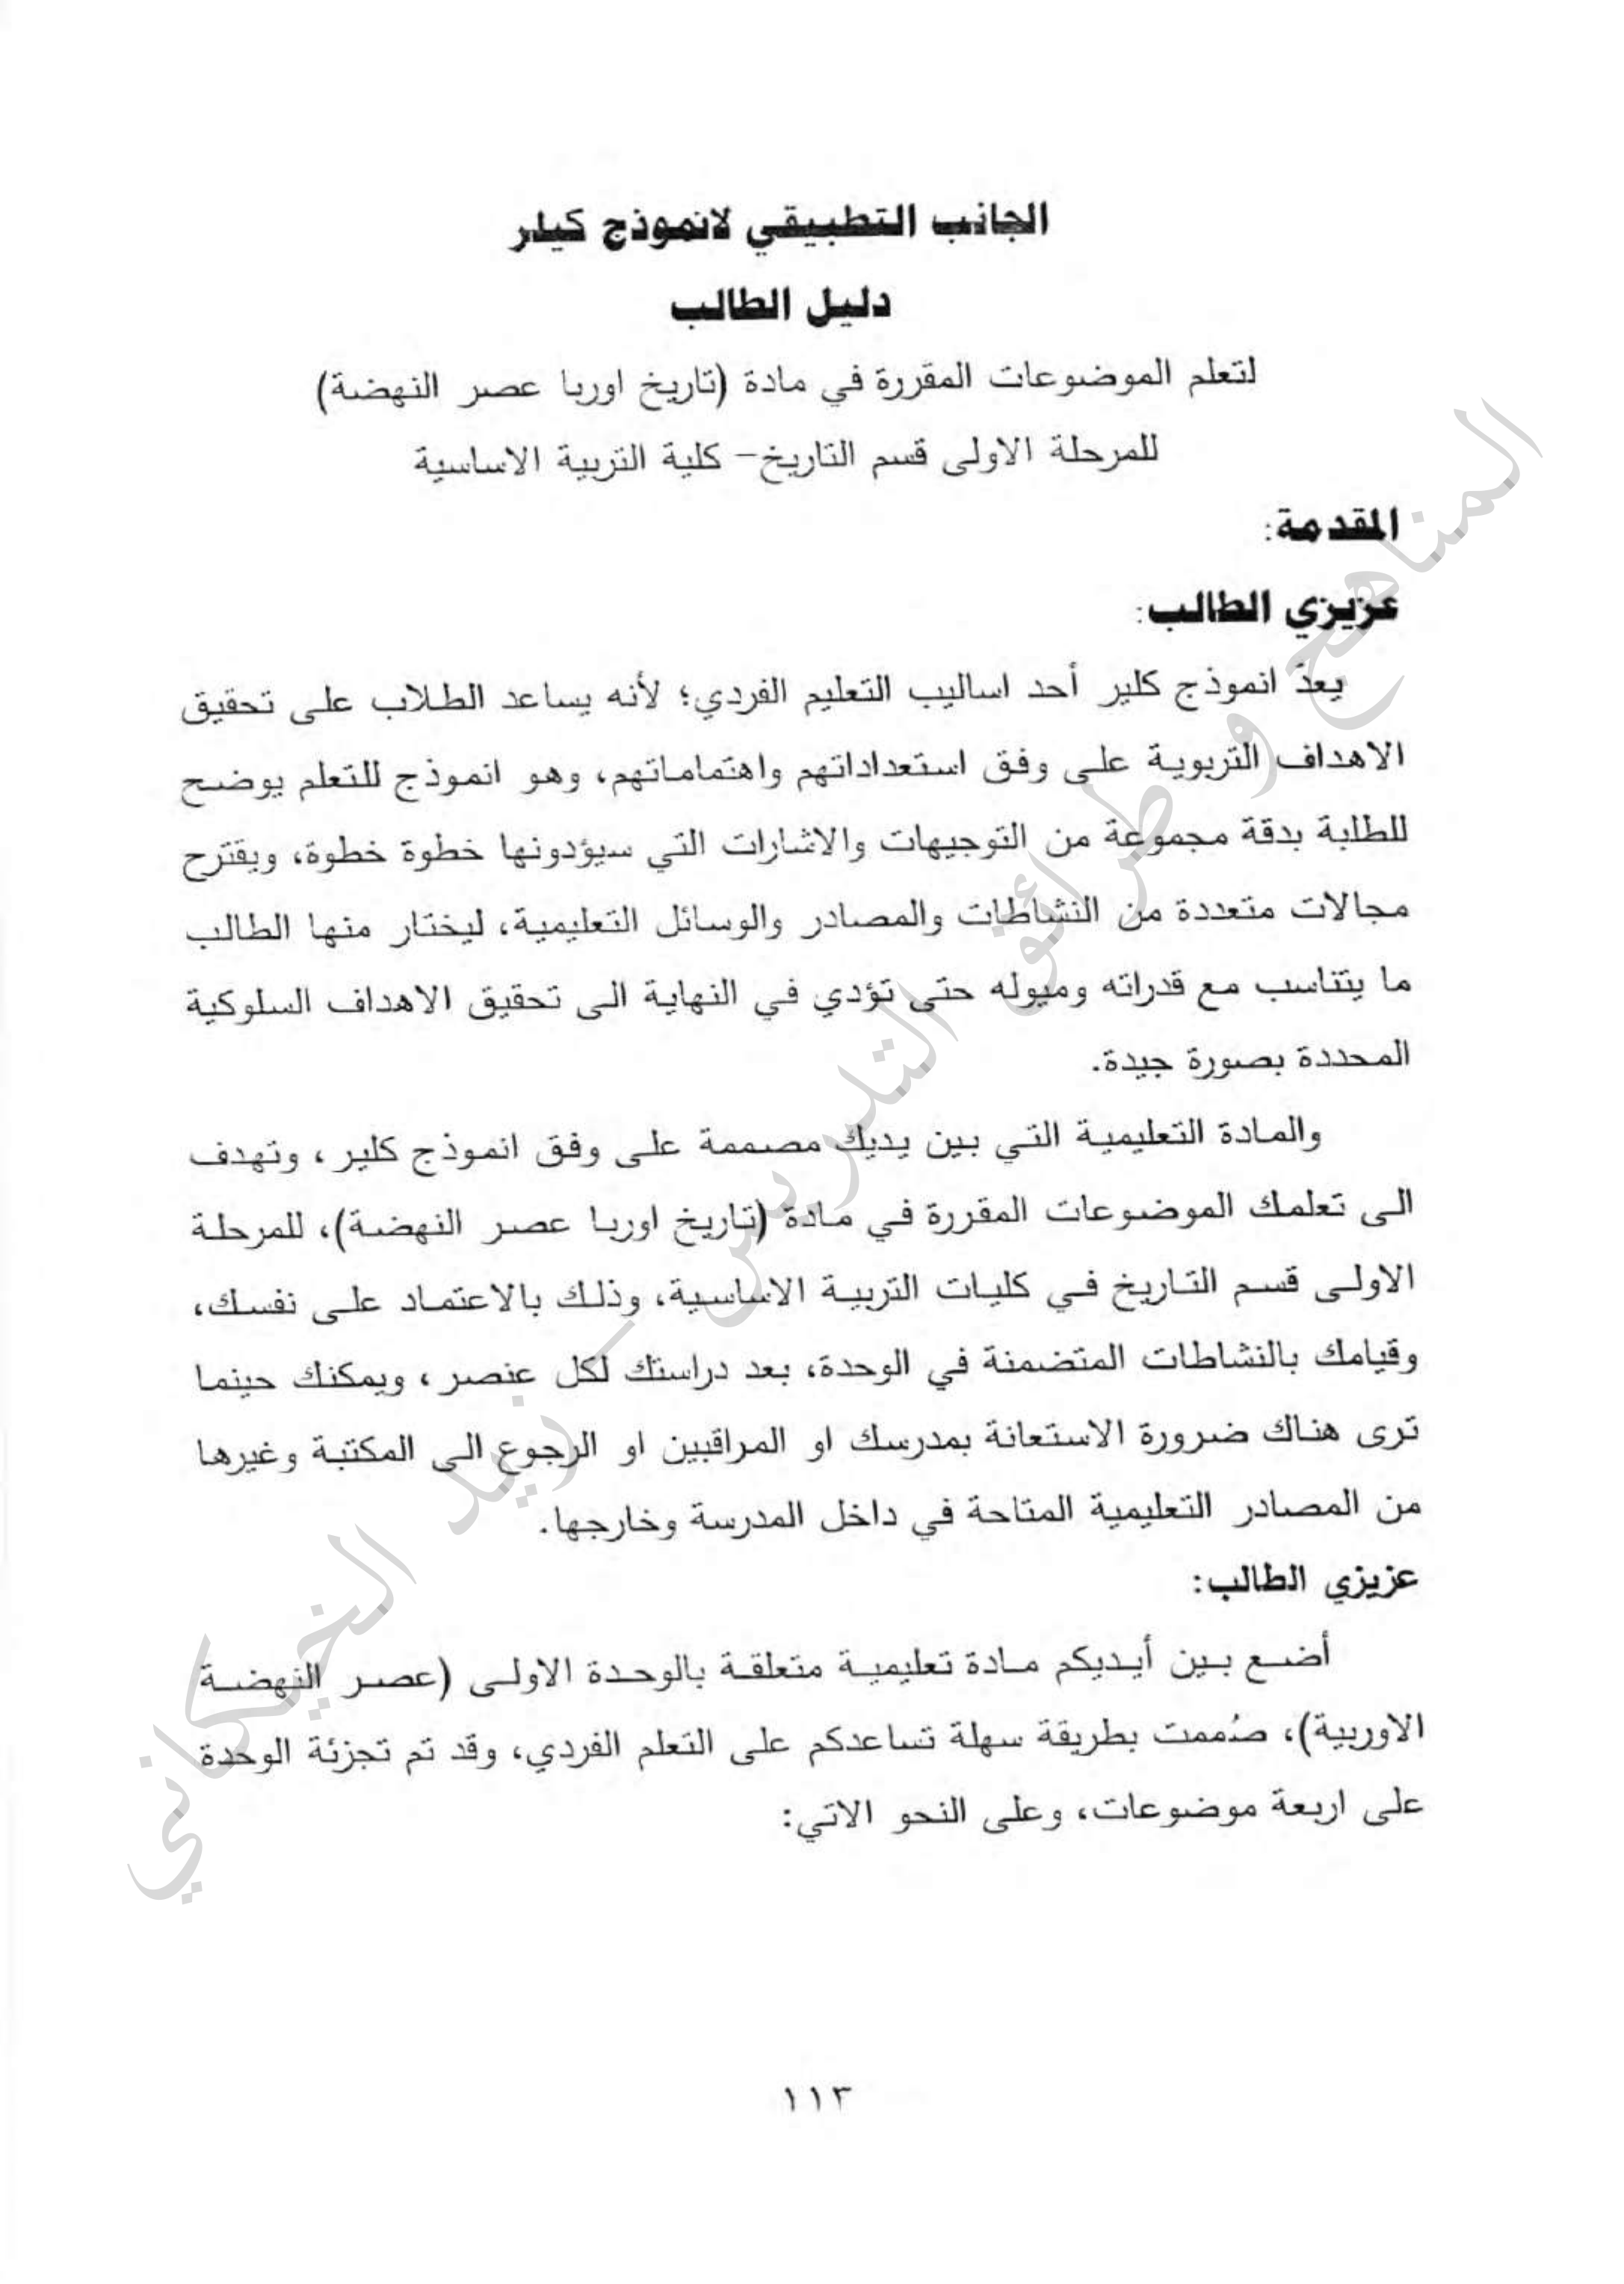 الجانب التطبيقي لانموذج كيلر
دليل الطالب
لتعلم الموضوعات المقررة في مادة (تاريخ اوربا عصر النهضة)
للمرحلة الاولى قسم التاريخ- كلية التربية الاساسية
المقدمة:
عزيزي الطالب:
يعدّ انموذج كلير أحد اساليب التعليم الفردي؛ لأنه يساعد الطلاب على تحقيق
الاهداف التربوية على وفق استعداداتهم واهتماماتهم، وهو انموذج للتعلم يوضح
للطلبة بدقة مجموعة من التوجيهات والاشارات التي سيؤدونها خطوة خطوة، ويقترح
مجالات متعددة من النشاطات والمصادر والوسائل التعليمية، ليختار منها الطالب
ما يتناسب مع قدراته وميوله حتى تؤدي في النهاية الى تحقيق الاهداف السلوكية
المحددة بصورة جيدة.
والمادة التعليمية التي بين يديك مصممة على وفق انموذج كلير، وتهدف
الى تعلمك الموضوعات المقررة في مادة (تاريخ اوربا عصر النهضة)، للمرحلة
الاولى قسم التاريخ في كليات التربية الاساسية، وذلك بالاعتماد على نفسك،
وقيامك بالنشاطات المتضمنة في الوحدة، بعد دراستك لكل عنصر، ويمكنك حينما
ترى هناك ضرورة الاستعانة بمدرسك او المراقبين او الرجوع الى المكتبة وغيرها
من المصادر التعليمية المتاحة في داخل المدرسة وخارجها.
عزيزي الطالب:
أضع بين أيديكم مادة تعليمية متعلقة بالوحدة الاولى (عصر النهضة
الاوربية)، صُممت بطريقة سهلة تساعدكم على التعلم الفردي، وقد تم تجزئة الوحدة
على اربعة موضوعات، وعلى النحو الاتي:
١١٣
المناهج وطرائق التدريس - زيد الخيكاني